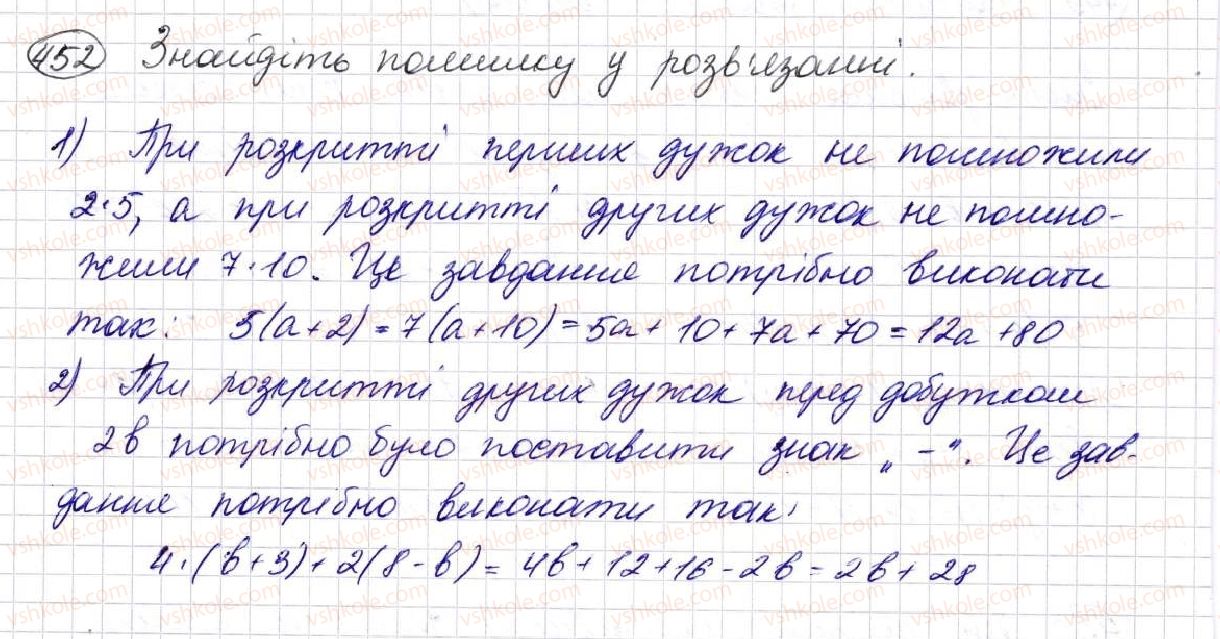 452 Знайдіть помилку у розв'язанні.
1) При розкритті перших дужок не помножили
2·5, а при розкритті других дужок не помно-
жили 7·10. Це завдання потрібно виконати
так: 5(a+2) = 7(a+10) = 5a + 10 + 7a + 70 = 12a + 80
2) При розкритті других дужок перед добутком
2в потрібно було поставити знак „ - ". Це зав-
дання потрібно виконати так:
4·(в+3)+2(8-в) = 4в+12+16-2в = 2в+28